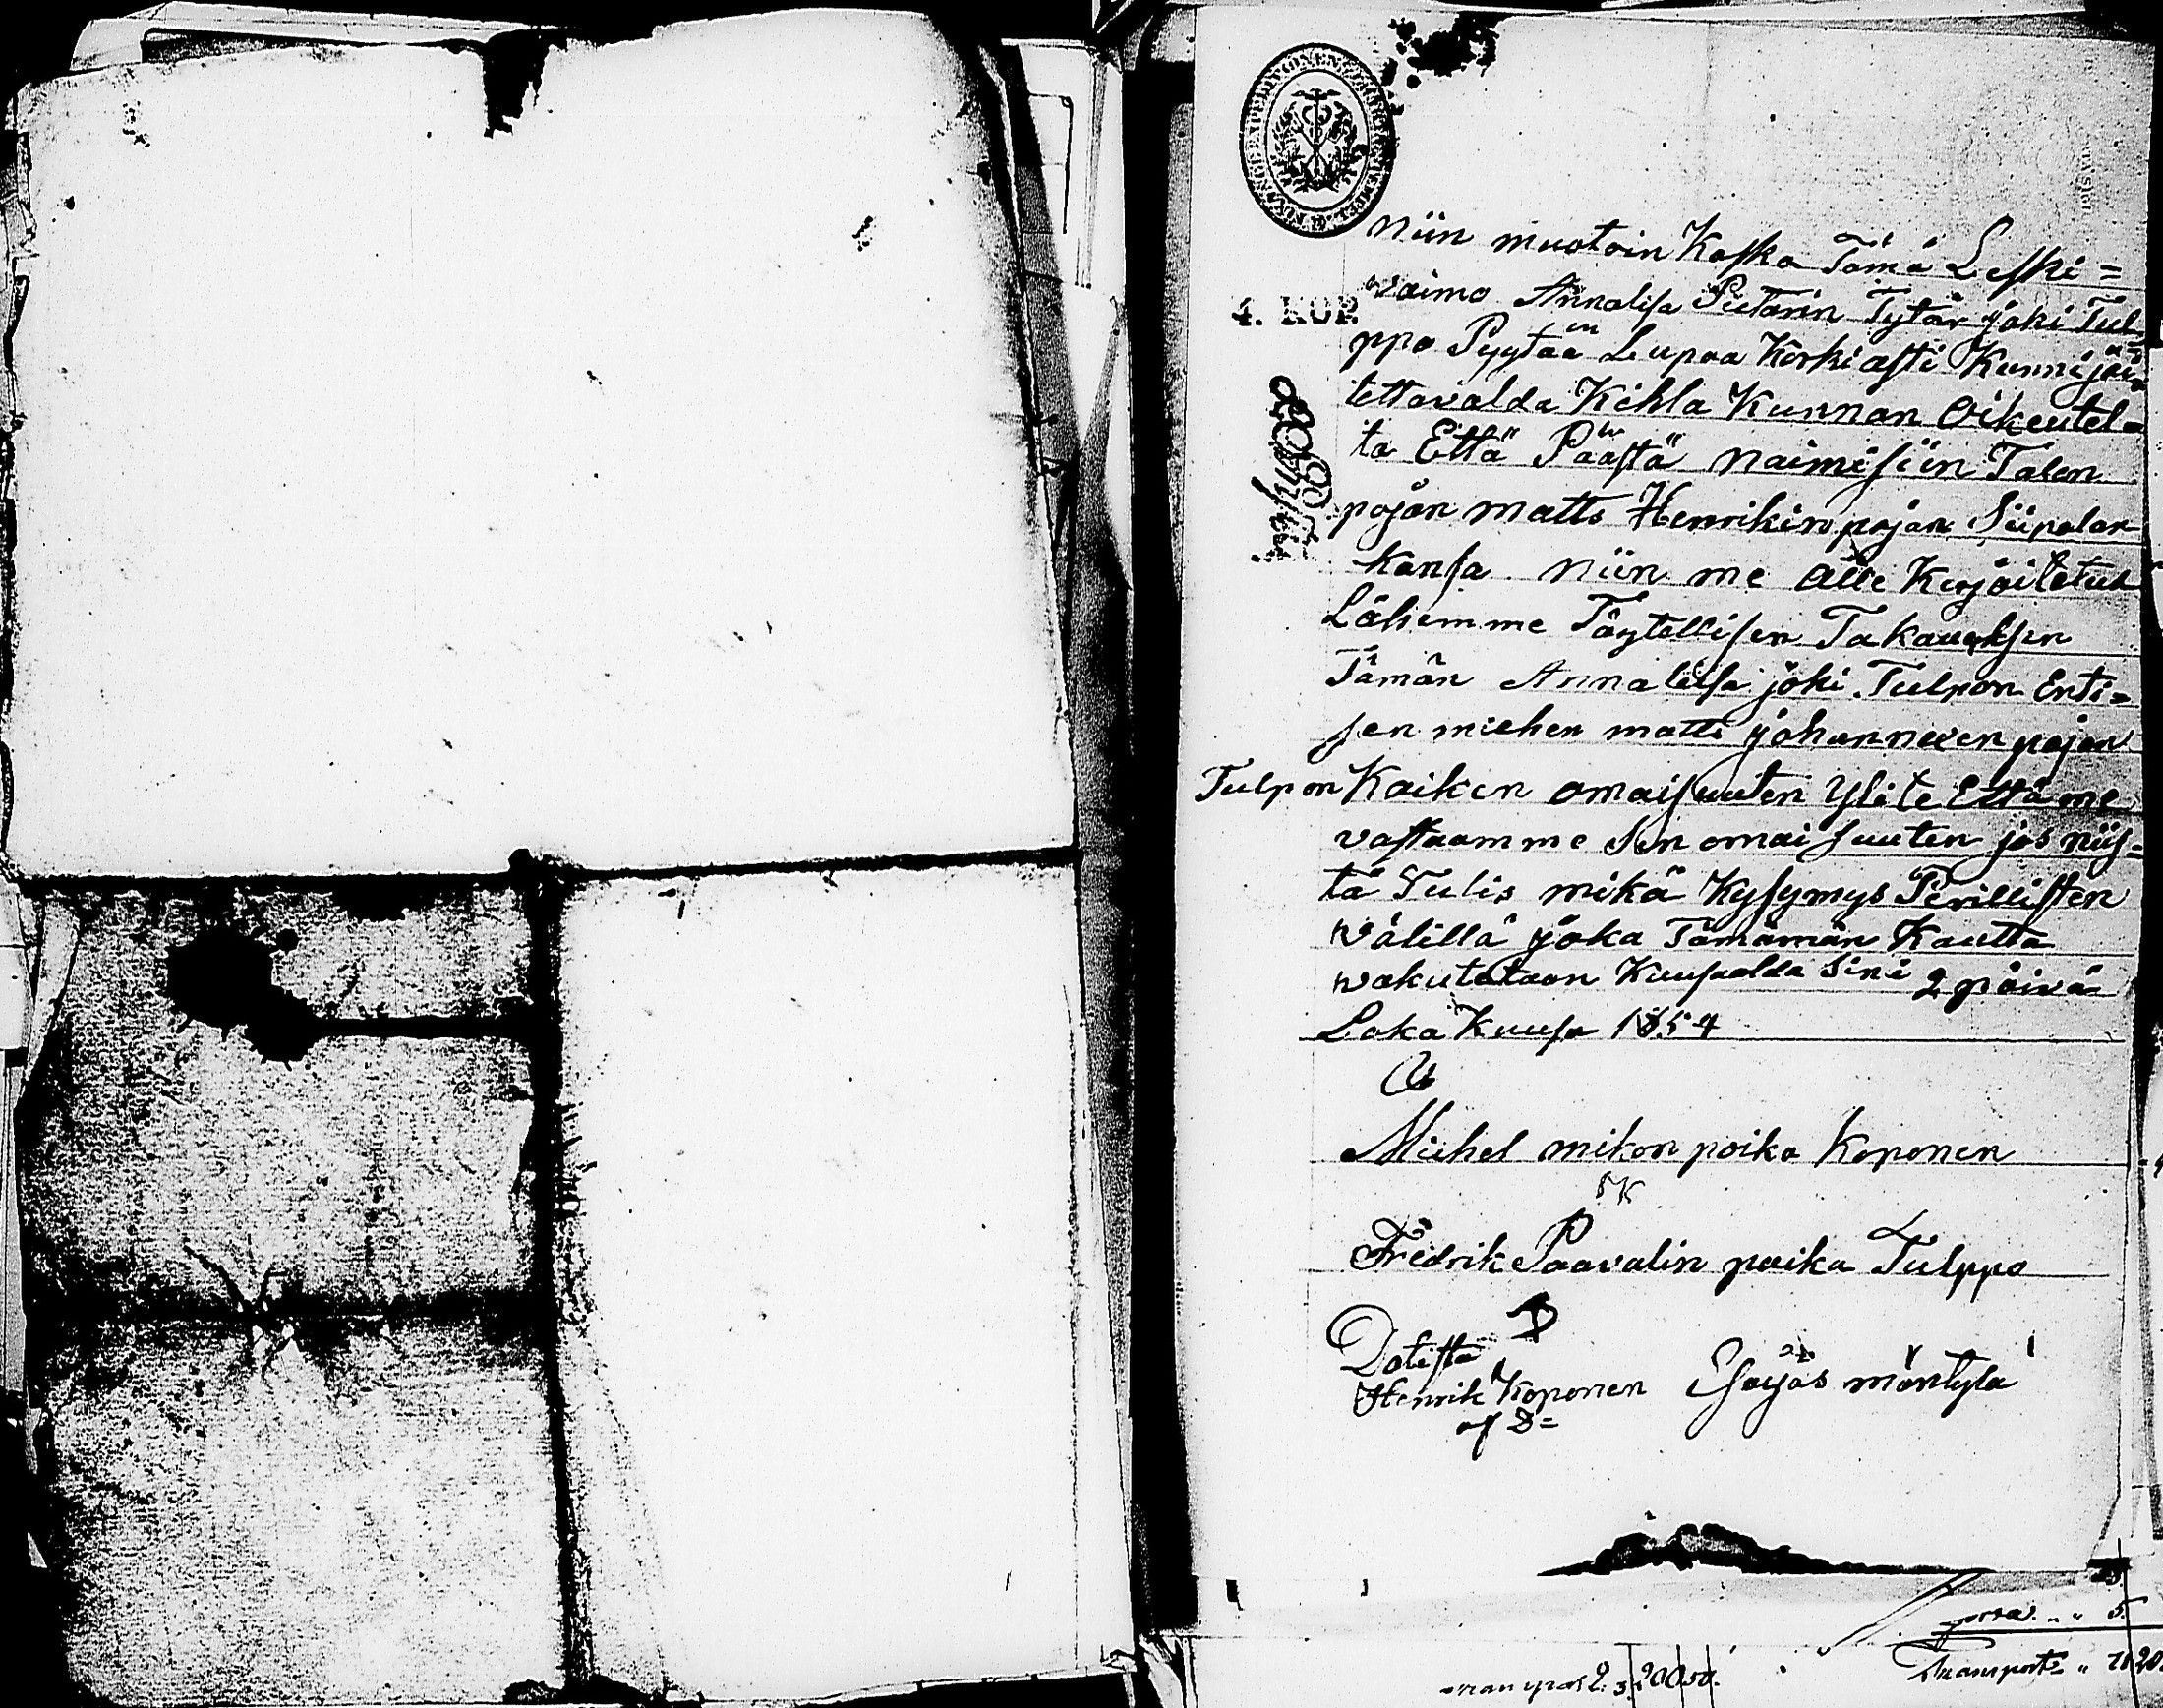 4. KOP.
Niin muotoin Koska Tämä Leski=
waimo Annalisa Pietarin Tytär joki Tul=
ppo Pyytää Lupaa Korkiasti Kunnijoi=
tettavalda Kihla Kunnan Oikeutel=
ta Että Päästä Naimisiin Talon
pojan matts Henrikin pojan Siipolan
kansa. Niin me alle Kirjoitetut
Lähemme Täytellisen Takauksen
Tämän Annaliisa joki Tulpon Enti=
sen miehen matti johannexen pojan
Tulpon Kaiken omaisuuten Ylite Että me
vastaamme Sen omaisuuten jos niis=
tä Tulis mikä Kysymys Perillisten
wälillä joka Tämämän Kautta
wakutetaan Kuusaalda Sinä 2 päivä
Loka Kuusa 1854
Michel mikon poika Koponen
Fredrik Paavalin poika Tulppo
Dotista
Henrik Koponen Esajas mäntylä
Transport